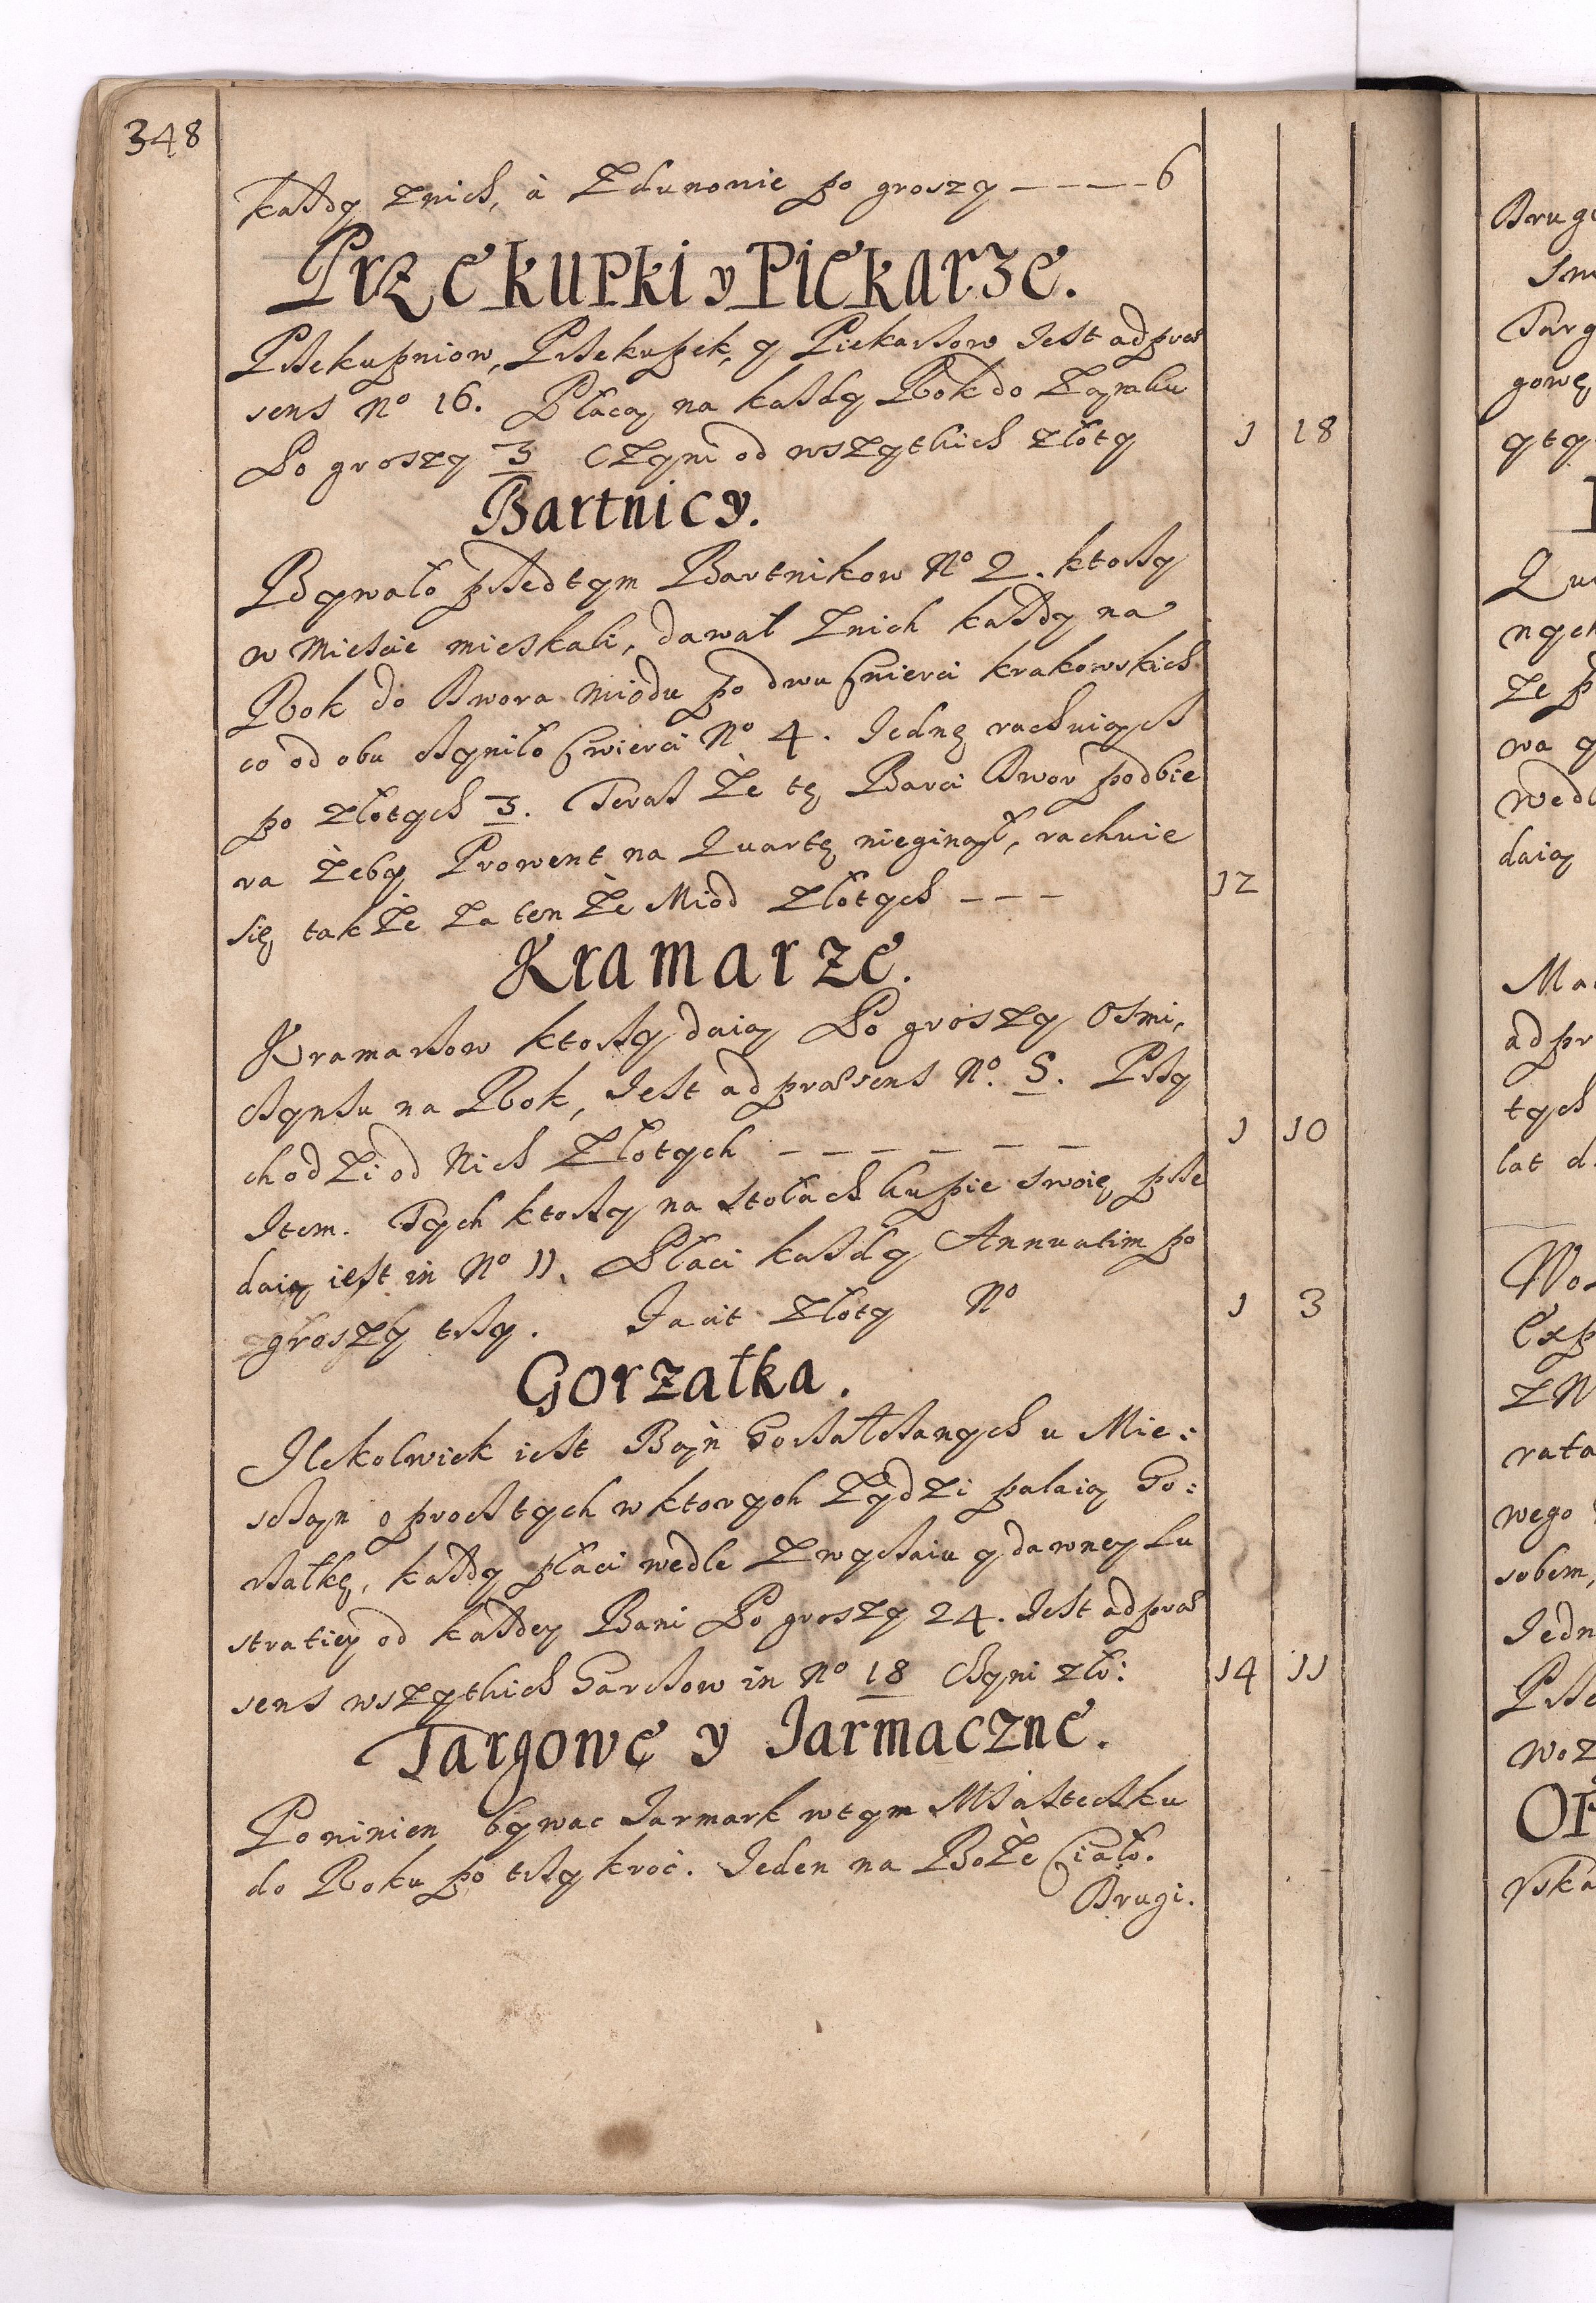 348
każdy znich, à Zdunowie po groszy ---- 6
Przekupki y Piekarze.
Przekupniow, Przekupek, y Piekarzow Jest ad præ
sens No 16. Płacą na każdy Rok do Zamku
Po groszy 3 Czyni od wszytkich złoty 1 18
Bartnicy.
Bywało przedtym Bartnikow No 2. ktorzy
w Miescie mieszkali, dawał Znich każdy na
Rok do Dwora Miodu po dwu Cwierci krakowskich
co od obu czyniło Cwierci No 4. Jednę rachuiąc
po złotych 3. Teraz Że tę Barci Dwor podbie
ra żeby Prowent na Quartę nieginął, rachuie
się takŻe Za tenŻe Miod Złotych --- 12
Kramarze.
Kramarzow ktorzy daią Po groszy Osmi,
czynszu na Rok, Jest ad præsens No. 5. Przy
chodzi od Nich Złotych ------ 1 10
Item. Tych ktorzy na Stołach kupie swoię prze
daią iest in No 11. Płaci każdy Annuatim po
groszy trzy. Facit Złoty No 1 3
Gorzałka.
Ilekolwiek iest Bań Gorzałczanych u Mie:
szczan oprocz tych w ktorych Żydzi palaią Go:
rzałkę, każdy płaci wedle Zwyczaiu y dawney Lu
stratiey od każdey Bani Po groszy 24. Jest ad præ
sens wszytkich Garcow in No 18 Czyni zło: 14 11
Targowe y Jarmaczne.
Powinien bywac Jarmark wtym Miasteczku
do Roku po trzykroć. Jeden na BoŻe Ciało.
Drugi.